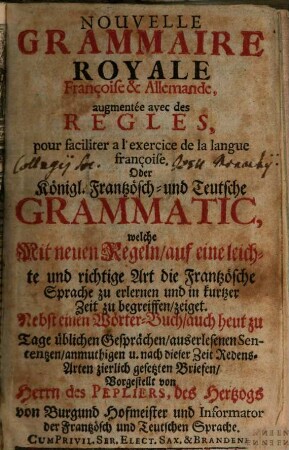 NOUVELLE
GRAMMAIRE
ROYALE
Françoise & Allemande,
augmentée avec des
REGLES,
pour faciliter a l'exercice de la langue
françoise,
Collegij Soc.
Oder
Königl. Frantzösch- und Teutsche
GRAMMATIC,
welche
Mit neuen Regeln/auf eine leich-
te und richtige Art die Frantzösche
Sprache zu erlernen und in kurtzer
Zeit zu begreiffen/zeiget.
Nebst einen Wörter-Buch/auch heut zu
Tage üblichen Gesprächen/auserlesenen Sen-
tentzen/anmuthigen u. nach dieser Zeit Redens-
Arten zierlich gesetzten Briefen/
Vorgestellt von
Herrn des PEPLIERS, des Hertzogs
von Burgund Hofmeister und Informator
der Frantzösch und Teutschen Sprache.
CUM PRIVIL. SER. ELECT. SAX. & BRANDENB.